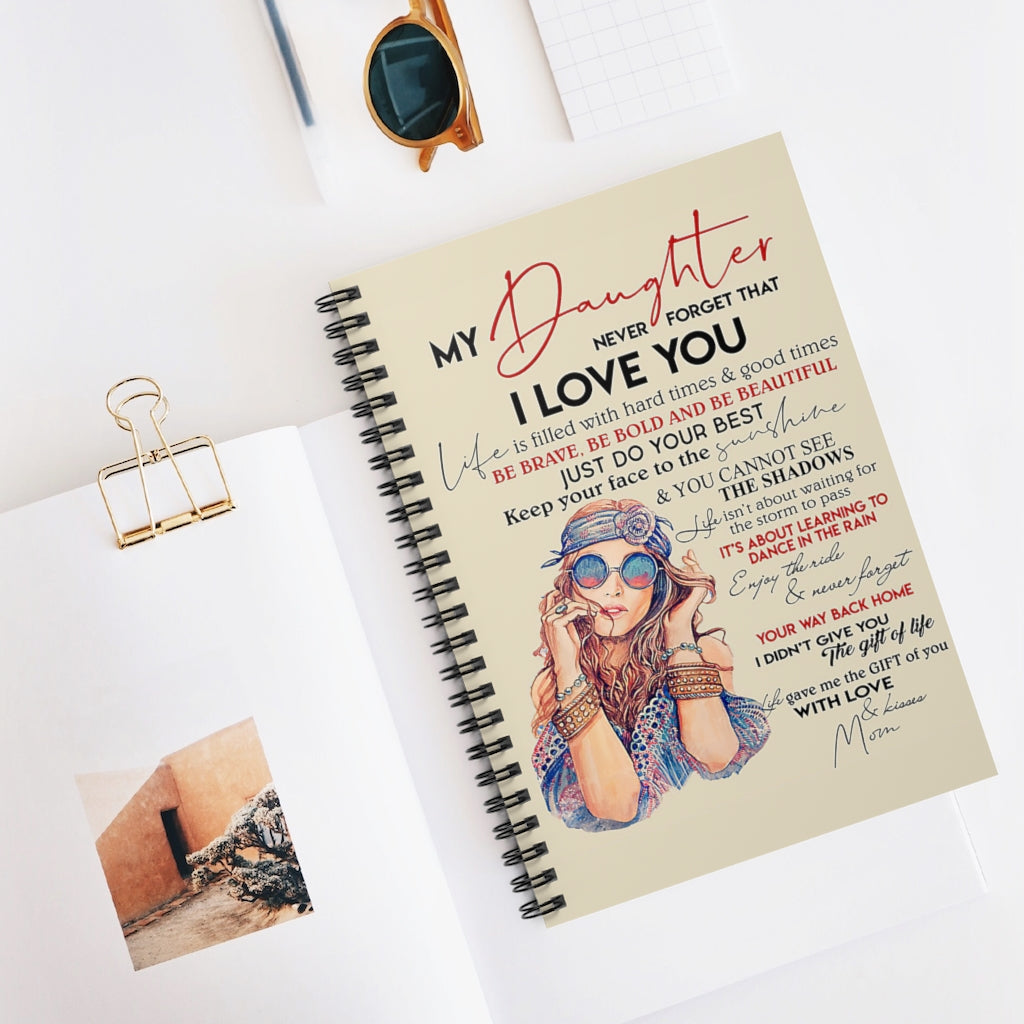 MY Daughter
NEVER FORGET THAT
I LOVE YOU
Life is filled with hard times & good times
BE BRAVE, BE BOLD AND BE BEAUTIFUL
JUST DO YOUR BEST
Keep your face to the sunshine
& YOU CANNOT SEE
THE SHADOWS
Life isn't about waiting for
the storm to pass
IT'S ABOUT LEARNING TO
DANCE IN THE RAIN
Enjoy the ride
& never forget
YOUR WAY BACK HOME
I DIDN'T GIVE YOU
The gift of life
Life gave me the GIFT of you
WITH LOVE
& kisses
Mom